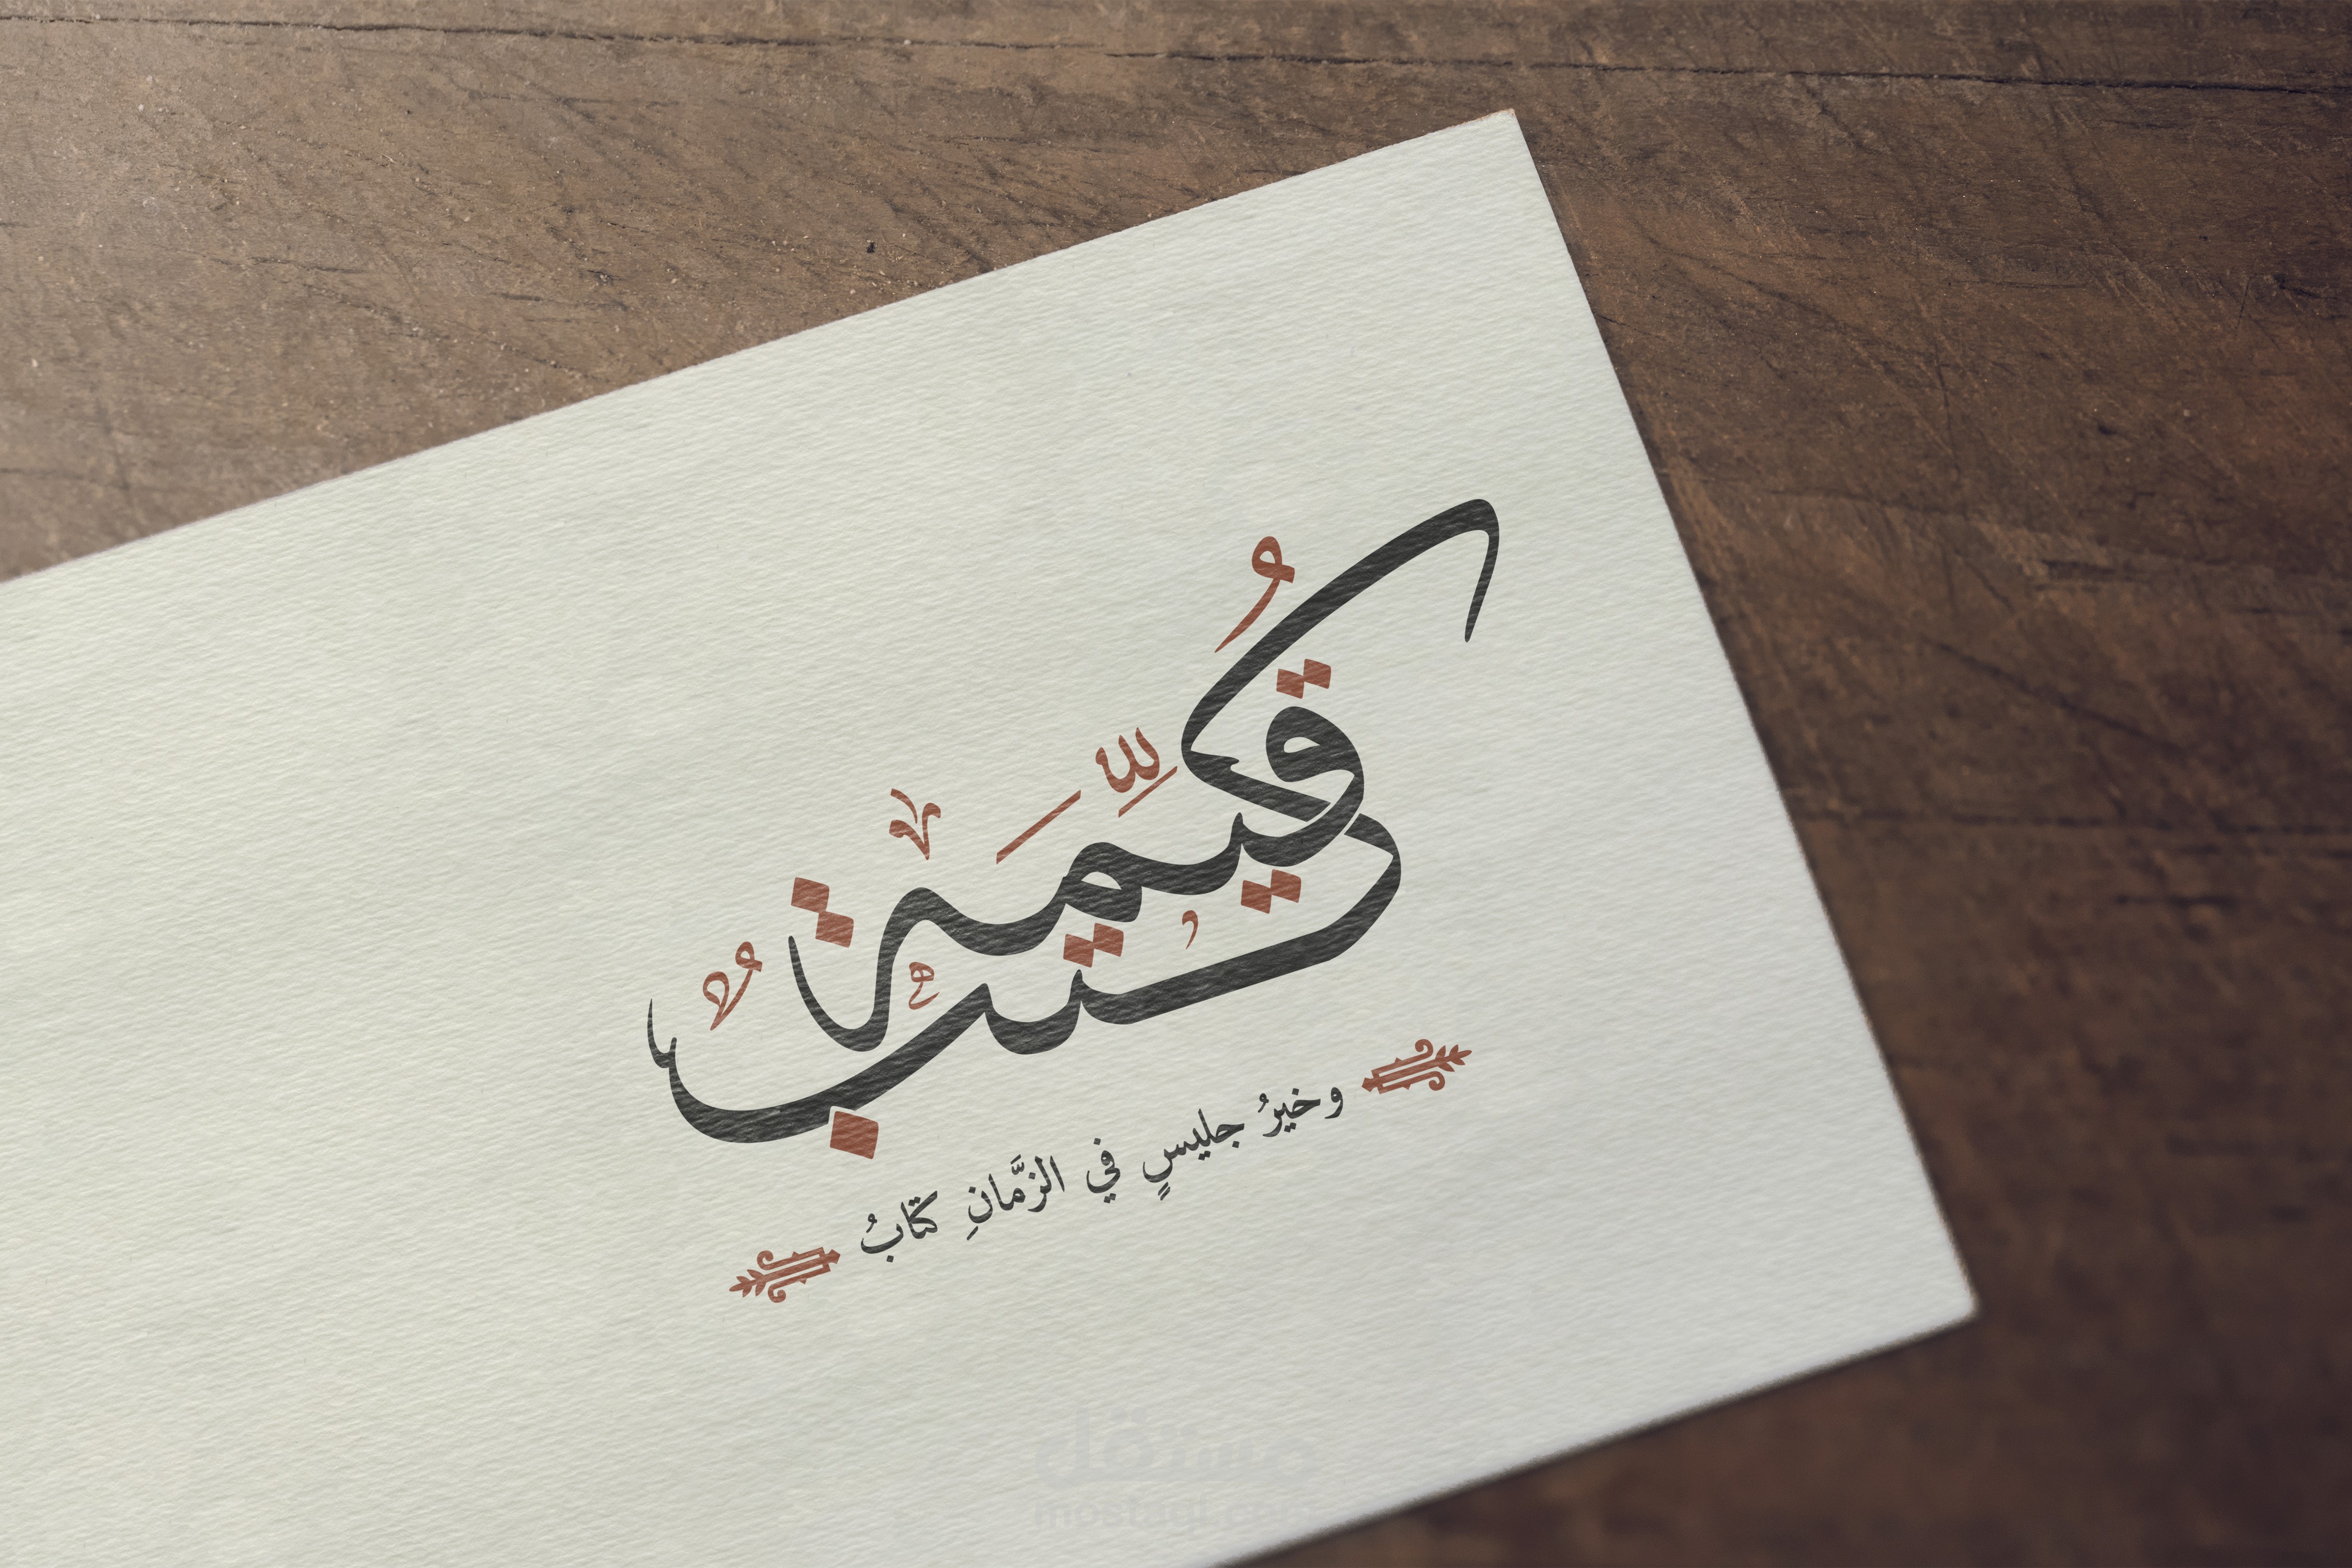 كُتُبٌ قيِّمَة
وخيرُ جليسٍ في الزَّمانِ كتابُ
مستقل
mostaql.com